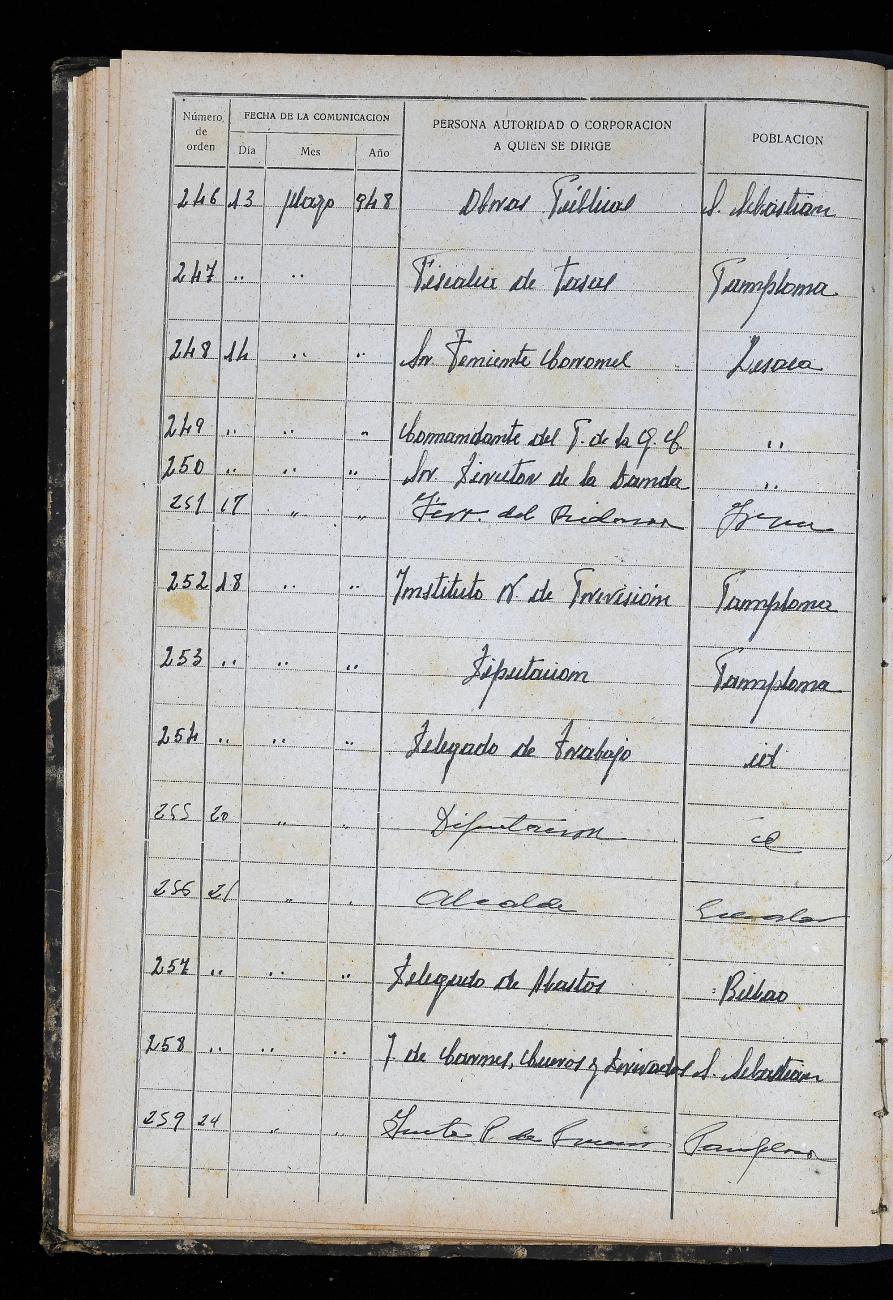 Número de orden FECHA DE LA COMUNICACION PERSONA AUTORIDAD O CORPORACION A QUIEN SE DIRIGE POBLACION
Día Mes Año
246 13 Mayo 948 Obras Públicas S. Sebastián
247 .. .. Fiscalia de Tasas Pamplona
248 14 .. .. Sr. Teniente Coronel Lesaca
249 .. .. .. Comandante del P. de la G. C. ..
250 .. .. .. Sr. Director de la Banda ..
251 17 " " Ferr. del Bidasoa Irun
252 18 .. .. Instituto N. de Previsión Pamplona
253 .. .. .. Diputacion Pamplona
254 .. .. .. Delegado de Trabajo id
255 20 " " Diputacion id
256 21 " " Alcalde
257 .. .. .. Delegado de Abastos Bilbao
258 .. .. .. J. de Carnes, Cueros y Derivados S. Sebastián
259 24 " " Junta P. de Pamplona